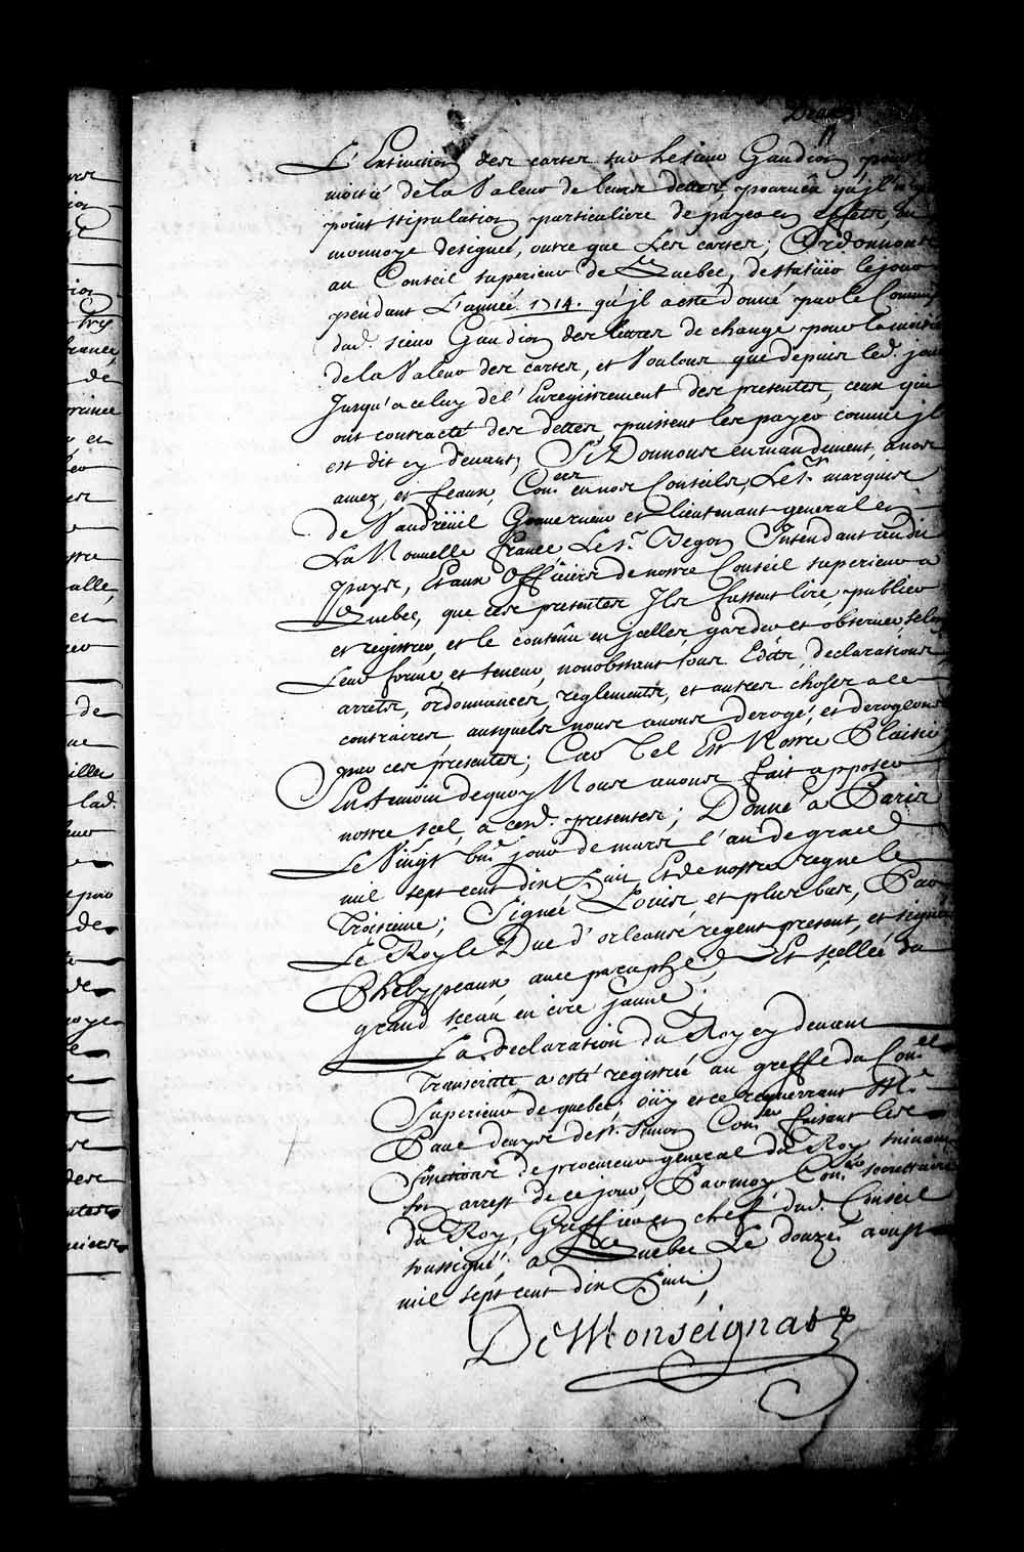 L'Extinction des cartes sur le sieur Gaudion, pour
moitié de la Valeur de leurs dettes, pourveu qu'jl n'y
point stipulation particuliere de payer en effets, ou
monnoye designée, outre que Les cartes; Ordonnons
au Conseil superieur de Quebec, de statuër le jour
pendant L'année 1714. qu'jl a esté donné par le Commis
dud. sieur Gaudion des lettres de change pour la moitié
de la Valeur des cartes, et Voulons que depuis led. jour
Jusqu'a celuy de l'Enregistrement des presentes, ceux qui
ont contracté des dettes puissent les payer comme jl
est dit cy devant, Si Donnons en mandement, a nos
amez et feaux Con.ers en nos Conseils, Le S.r marquis
de Vaudreüil Gouverneur et lieutenant general en
La Nouvelle france, Le S.r Begon Intendant audit
pays, Et aux Officiers de nostre Conseil superieur a
Quebec, que ces presentes Ils fassent lire, publier
et registrer, et le contenu en jcelles garder et observer selon
Leur forme et teneur, nonobstant tous Edits, declarations,
arrets, ordonnances, reglements, et autres choses a ce
contraires, ausquels nous avons derogé, et derogeons
par ces presentes; Car Tel Est Nostre Plaisir,
En temoin de quoy Nous avons fait apposer
nostre scel a cesd. presentes; Donné a Paris
Le Vingt un.e jour de mars l'an de grace
mil sept cent dix huit Et de nostre regne le
Troisieme; Signée Louis, et plus bas, Par
Le Roy le Duc d'orleans regent present, et signé
Phelypeaux, avec paraphe, Et scellée du
grand sceau en cire jaune;
La declaration du Roy cy devant
Transcritte, a esté registrée au greffe du Con.el
Superieur de quebec, oüy et ce requerrant M.e
Paul denys de S.t Simon Con.er faisant les
fonctions de procureur general du Roy suivant
son arrest de ce jour, Par moy Con.er secretaire
du Roy, Greffier en chef dud. Conseil
soussigné; a Quebec Le douze aoust
mil sept cent dix huit,
De Monseignat